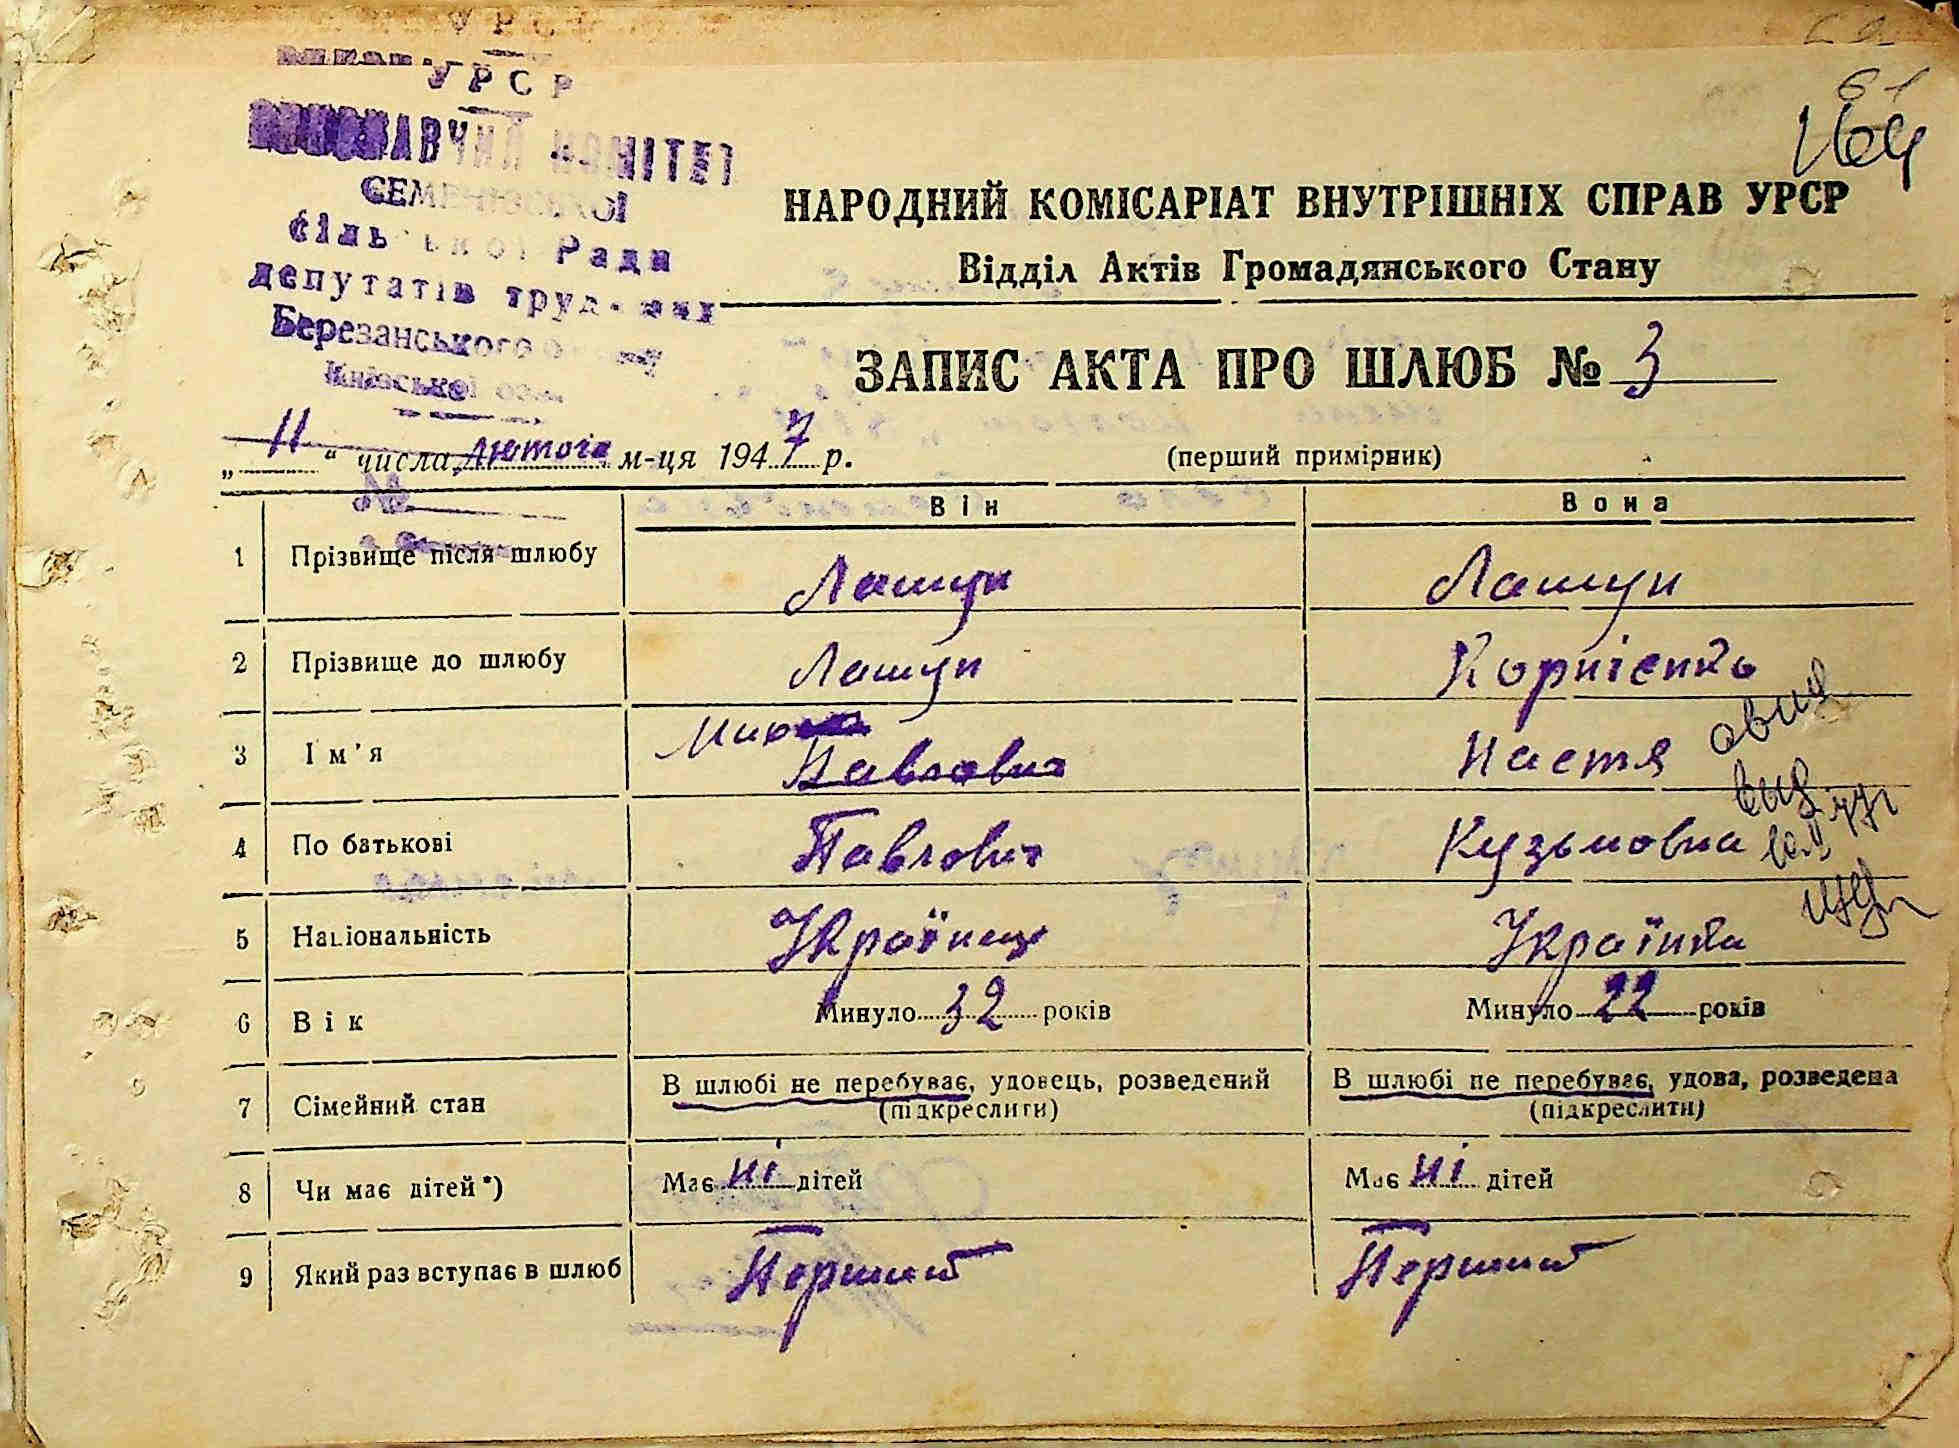 УРСР
ВИКОНАВЧИЙ КОМІТЕТ
СЕМЕНІВСЬКОЇ
сільської Ради
депутатів трудящих
Березанського
Київської
61
164
НАРОДНИЙ КОМІСАРІАТ ВНУТРІШНІХ СПРАВ УРСР
Відділ Актів Громадянського Стану
ЗАПИС АКТА ПРО ШЛЮБ № 3
„ 11 “ числа лютого м-ця 1947 р.
(перший примірник)
№
Він Вона
1 Прізвище після шлюбу Лашун Лашун
2 Прізвище до шлюбу Лашун Корнієнко
3 Ім'я Павлович Настя
4 По батькові Павлович Кузьмовна
5 Національність Українець Українка
6 Вік Минуло 32 років Минуло 22 років
7 Сімейний стан В шлюбі не перебуває, удовець, розведений В шлюбі не перебуває, удова, розведена
(підкреслити) (підкреслити)
8 Чи має дітей*) Має ні дітей Має ні дітей
9 Який раз вступає в шлюб Перший Перший